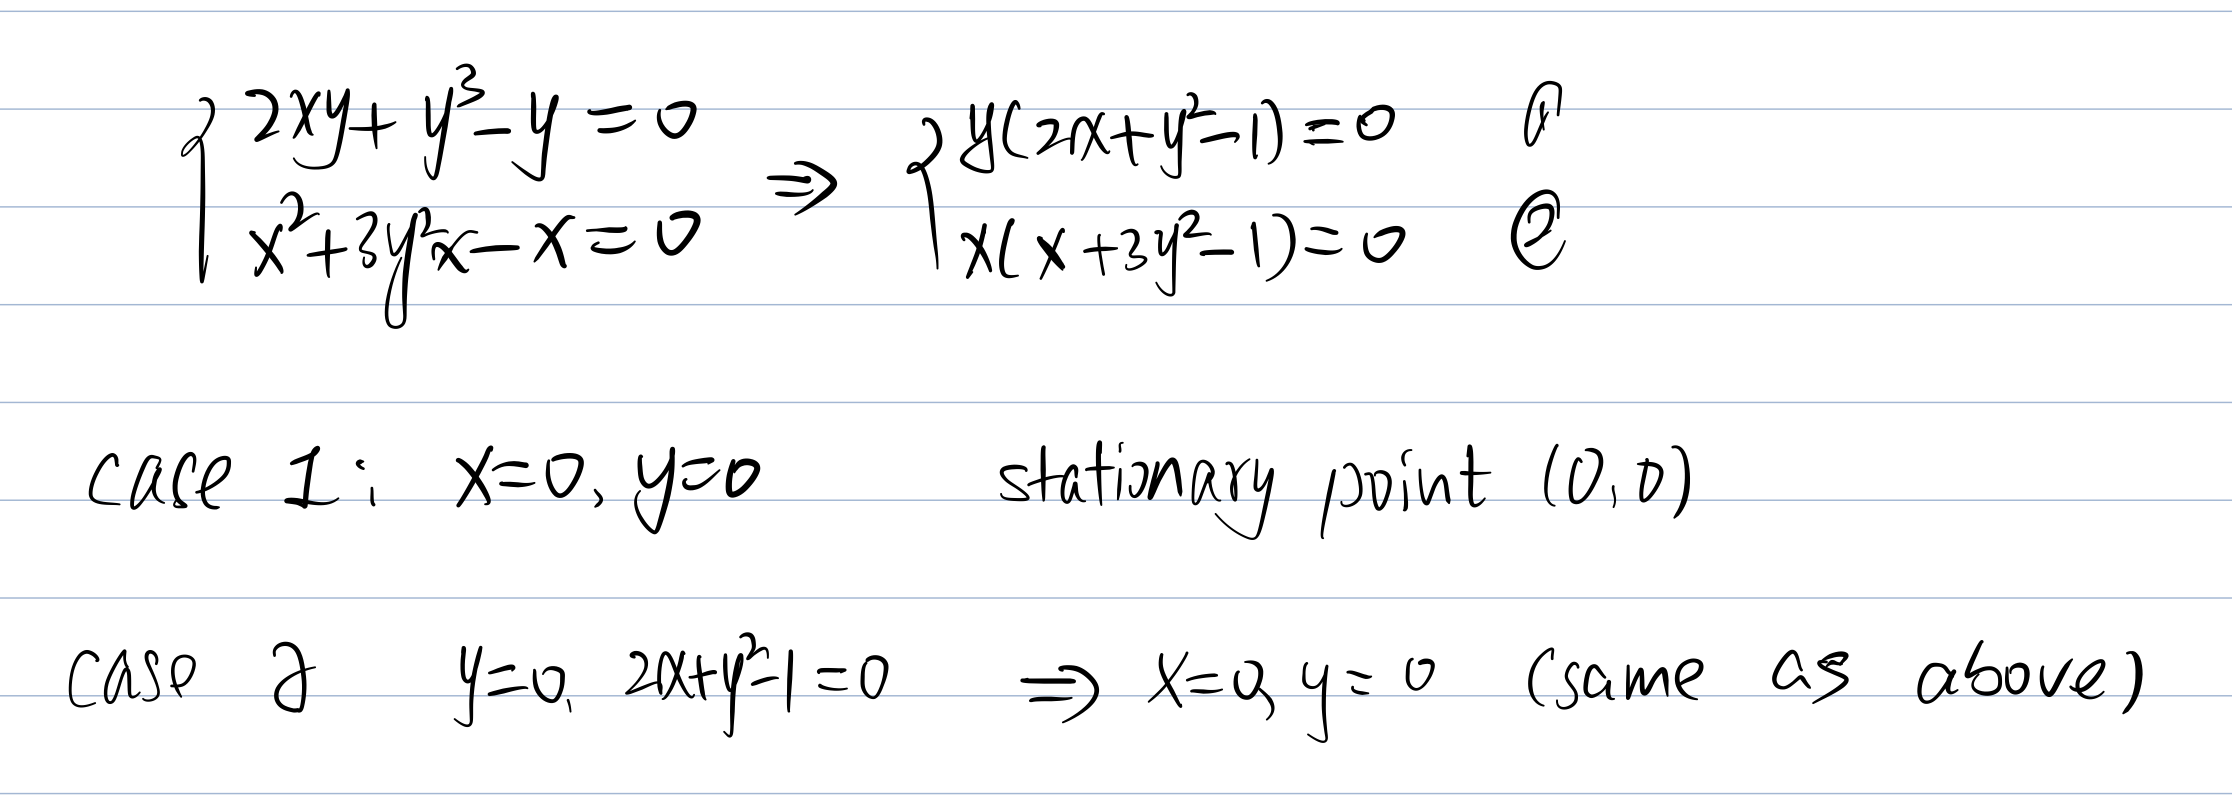 { 2xy + y³ - y = 0 ⇒ { y(2x + y² - 1) = 0 ①
x² + 3y²x - x = 0 x(x + 3y² - 1) = 0 ②
case 1: x=0, y=0 stationary point (0,0)
case 2 y=0, 2x+y²-1=0 ⇒ x=0, y=0 (same as above)